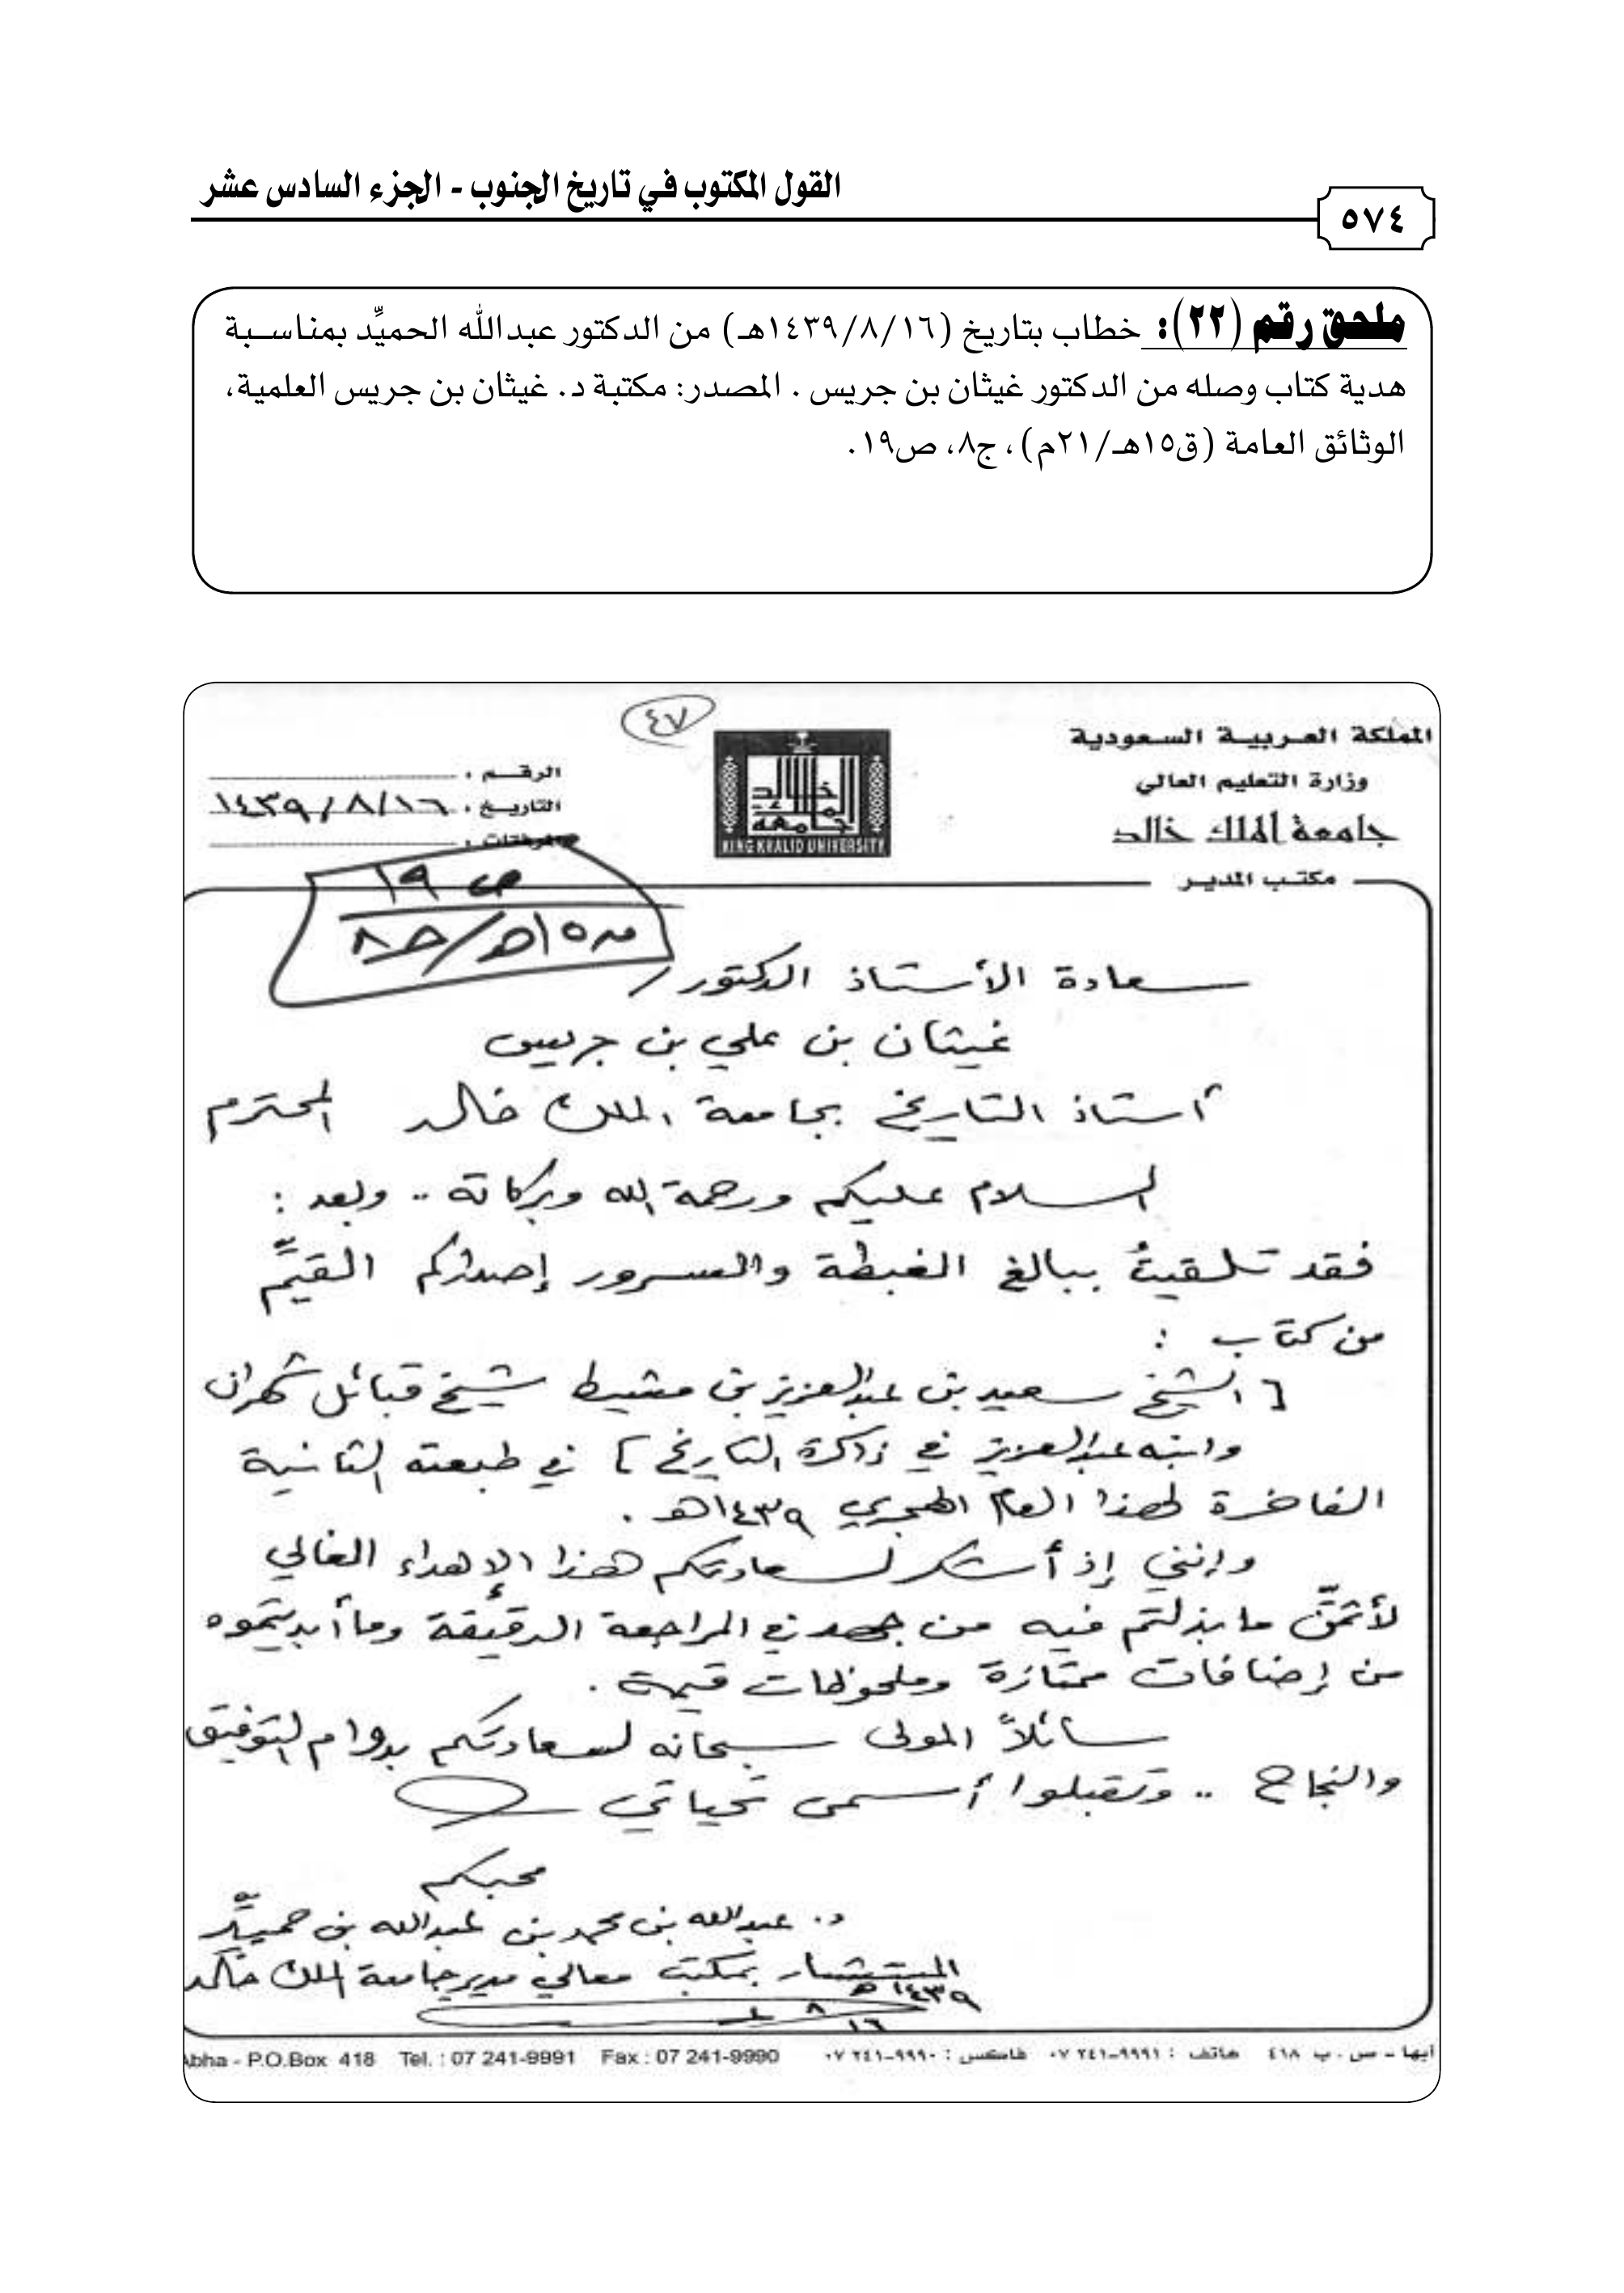 القول المكتوب في تاريخ الجنوب - الجزء السادس عشر
٥٧٤
ملحق رقم (٢٢): خطاب بتاريخ (١٤٣٩/٨/١٦هـ) من الدكتور عبدالله الحميِّد بمناسبة
هدية كتاب وصله من الدكتور غيثان بن جريس . المصدر: مكتبة د. غيثان بن جريس العلمية،
الوثائق العامة (ق١٥هـ/٢١م)، ج٨، ص١٩.
٤٧
المملكة العربية السعودية
وزارة التعليم العالي
جامعة الملك خالد
مكتب المدير
جامعة الملك خالد
KING KHALID UNIVERSITY
الرقم :
التاريخ : ١٤٣٩/٨/١٦
المرفقات :
ص ١٩
ق١٥هـ/جـ٨
سعادة الأستاذ الدكتور /
غيثان بن علي بن جريس
أستاذ التاريخ بجامعة الملك خالد المحترم
السلام عليكم ورحمة الله وبركاته .. وبعد :
فقد تلقيتُ ببالغ الغبطة والسرور إصداركم القيِّم
من كتاب :
[ الشيخ سعيد بن عبدالعزيز بن مشيط شيخ قبائل شهران
وابنه عبدالعزيز في ذاكرة التاريخ ] في طبعته الثانية
الفاخرة لهذا العام الهجري ١٤٣٩هـ .
وإنني إذ أشكر لسعادتكم هذا الإهداء الغالي
لأثمّن ما بذلتم فيه من جهد في المراجعة الدقيقة وما أبديتموه
من إضافات ممتازة وملحوظات قيمة .
سائلاً المولى سبحانه لسعادتكم بدوام التوفيق
والنجاح .. وتقبلوا أسمى تحياتي
محبكم
د. عبدالله بن محمد بن عبدالله بن حميِّد
المستشار بمكتب معالي مدير جامعة الملك خالد
١٤٣٩هـ
٨
١٦
Abha - P.O.Box 418 Tel. : 07 241-9991 Fax : 07 241-9990
أبها - ص . ب ٤١٨ هاتف : ٩٩٩١-٢٤١ ٠٧ فاكس : ٩٩٩٠-٢٤١ ٠٧